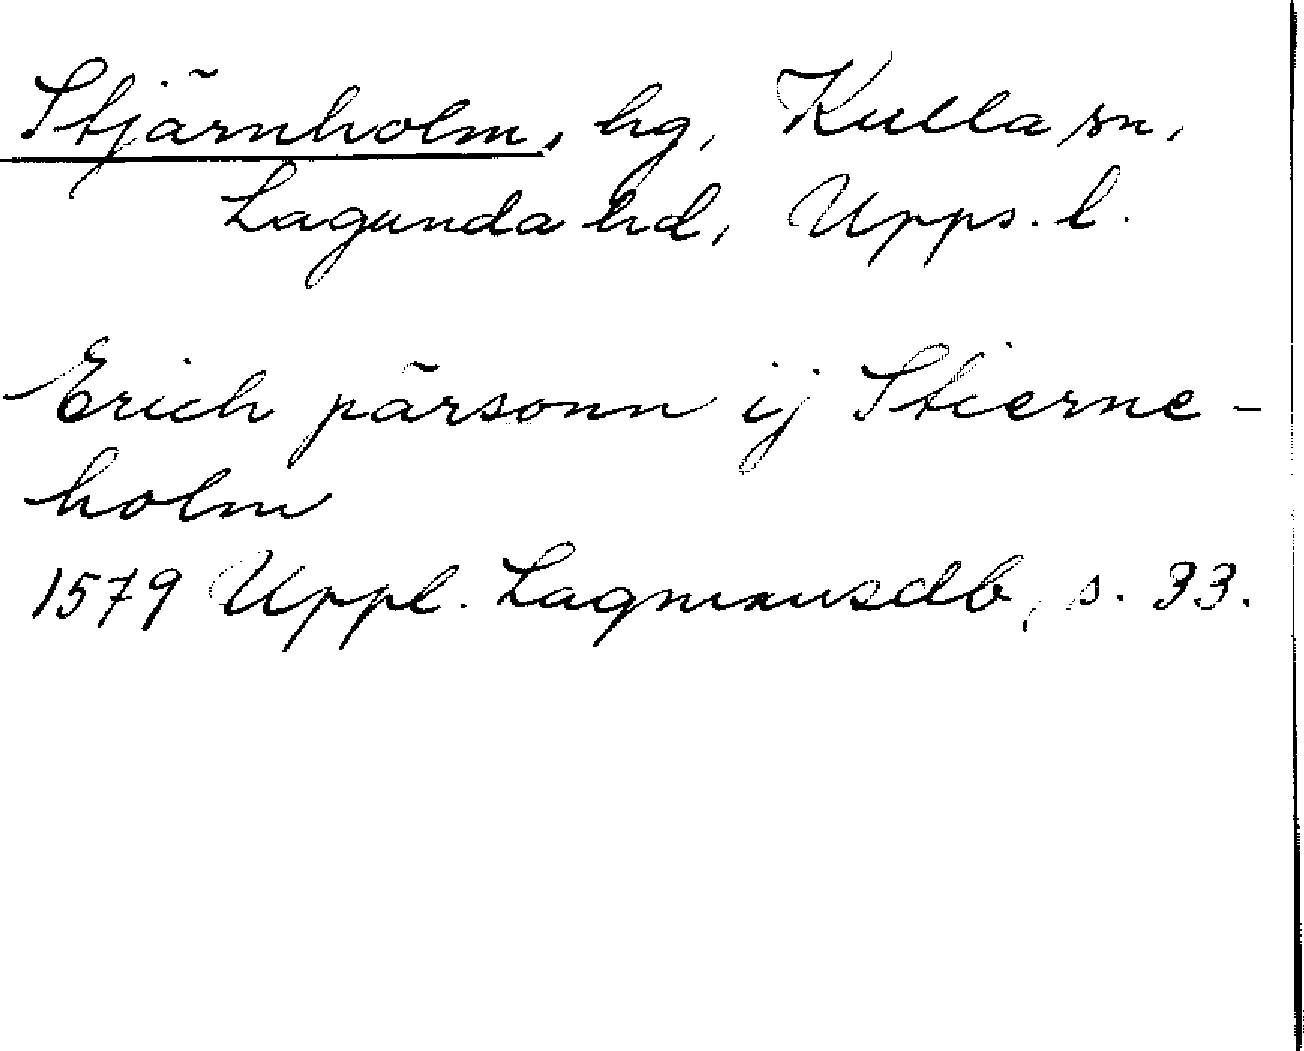 Stjärnholm, hg, Kulla sn,
Lagunda hd, Upps. l.
Erich pärsonn ij Stierne-
holm
1579 Uppl. Lagmansdb, s. 33.